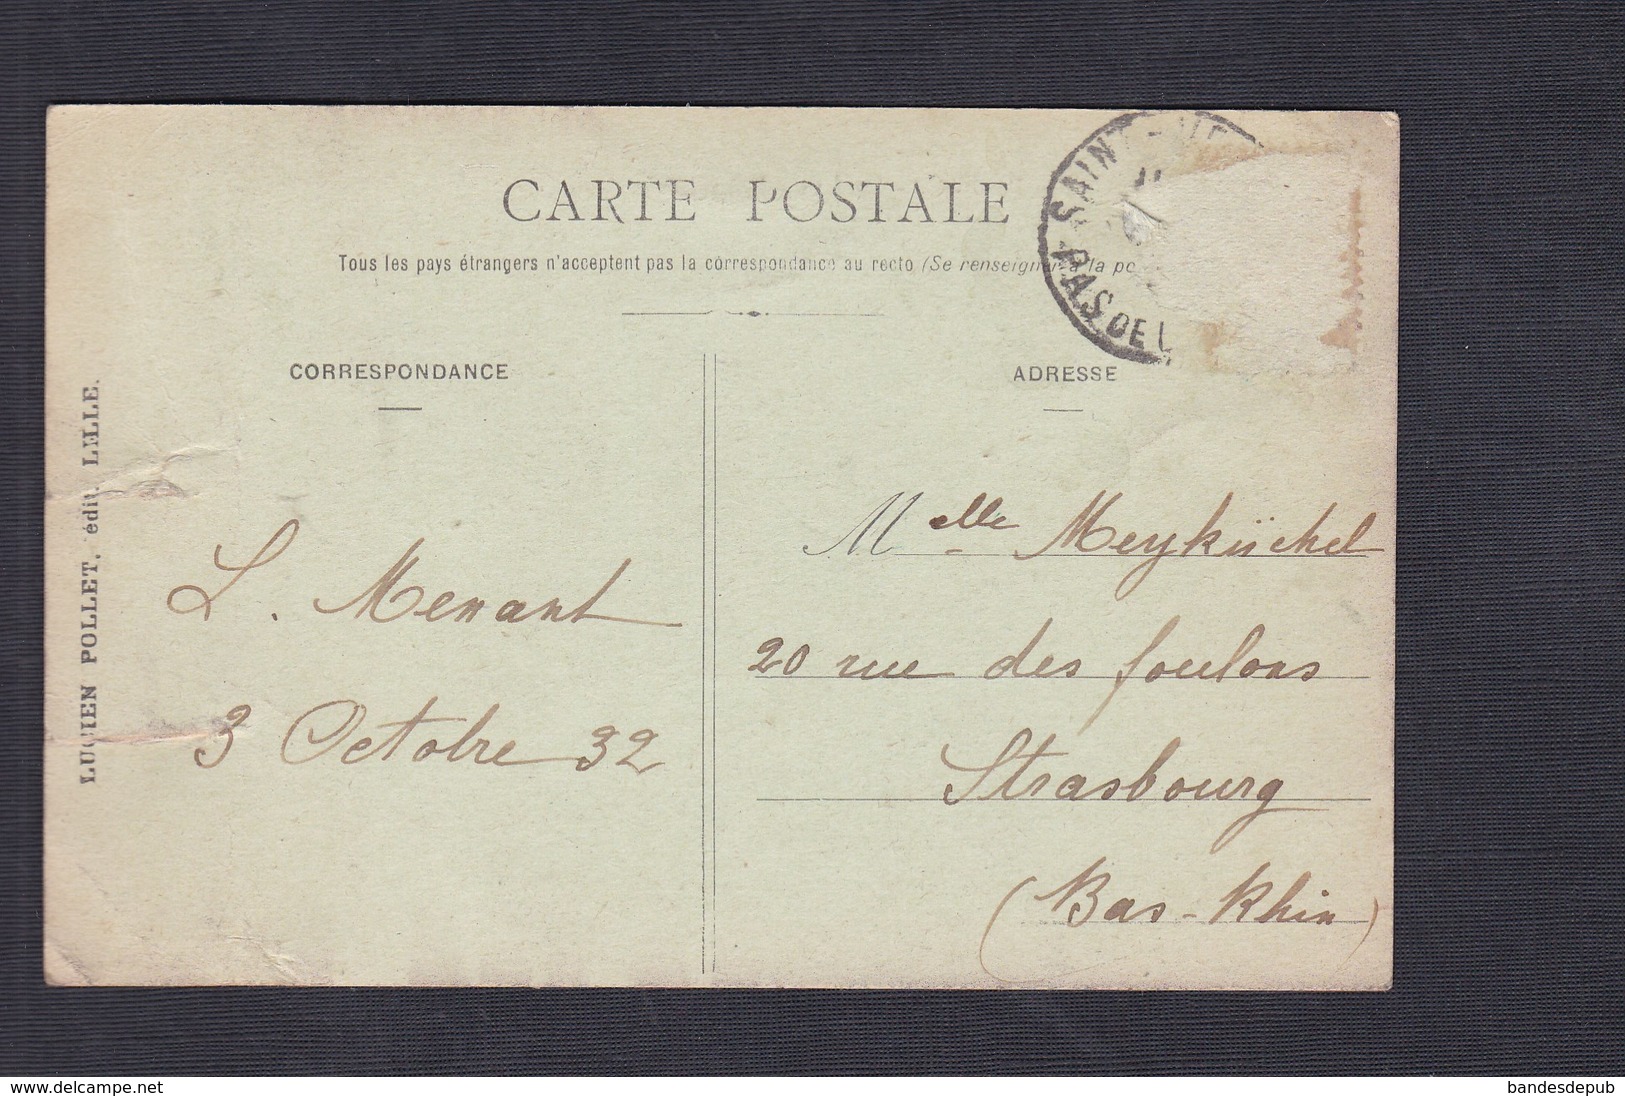 CARTE POSTALE
Tous les pays étrangers n'acceptent pas la correspondance au recto (Se renseigner à la
SAINT
PAS DE
CORRESPONDANCE
ADRESSE
LUCIEN POLLET, édit. LILLE.
L. Menant
3 Octobre 32
Melle Meyküchel
20 rue des foulons
Strasbourg
(Bas-Rhin)
delcampe.net
bandesdepub